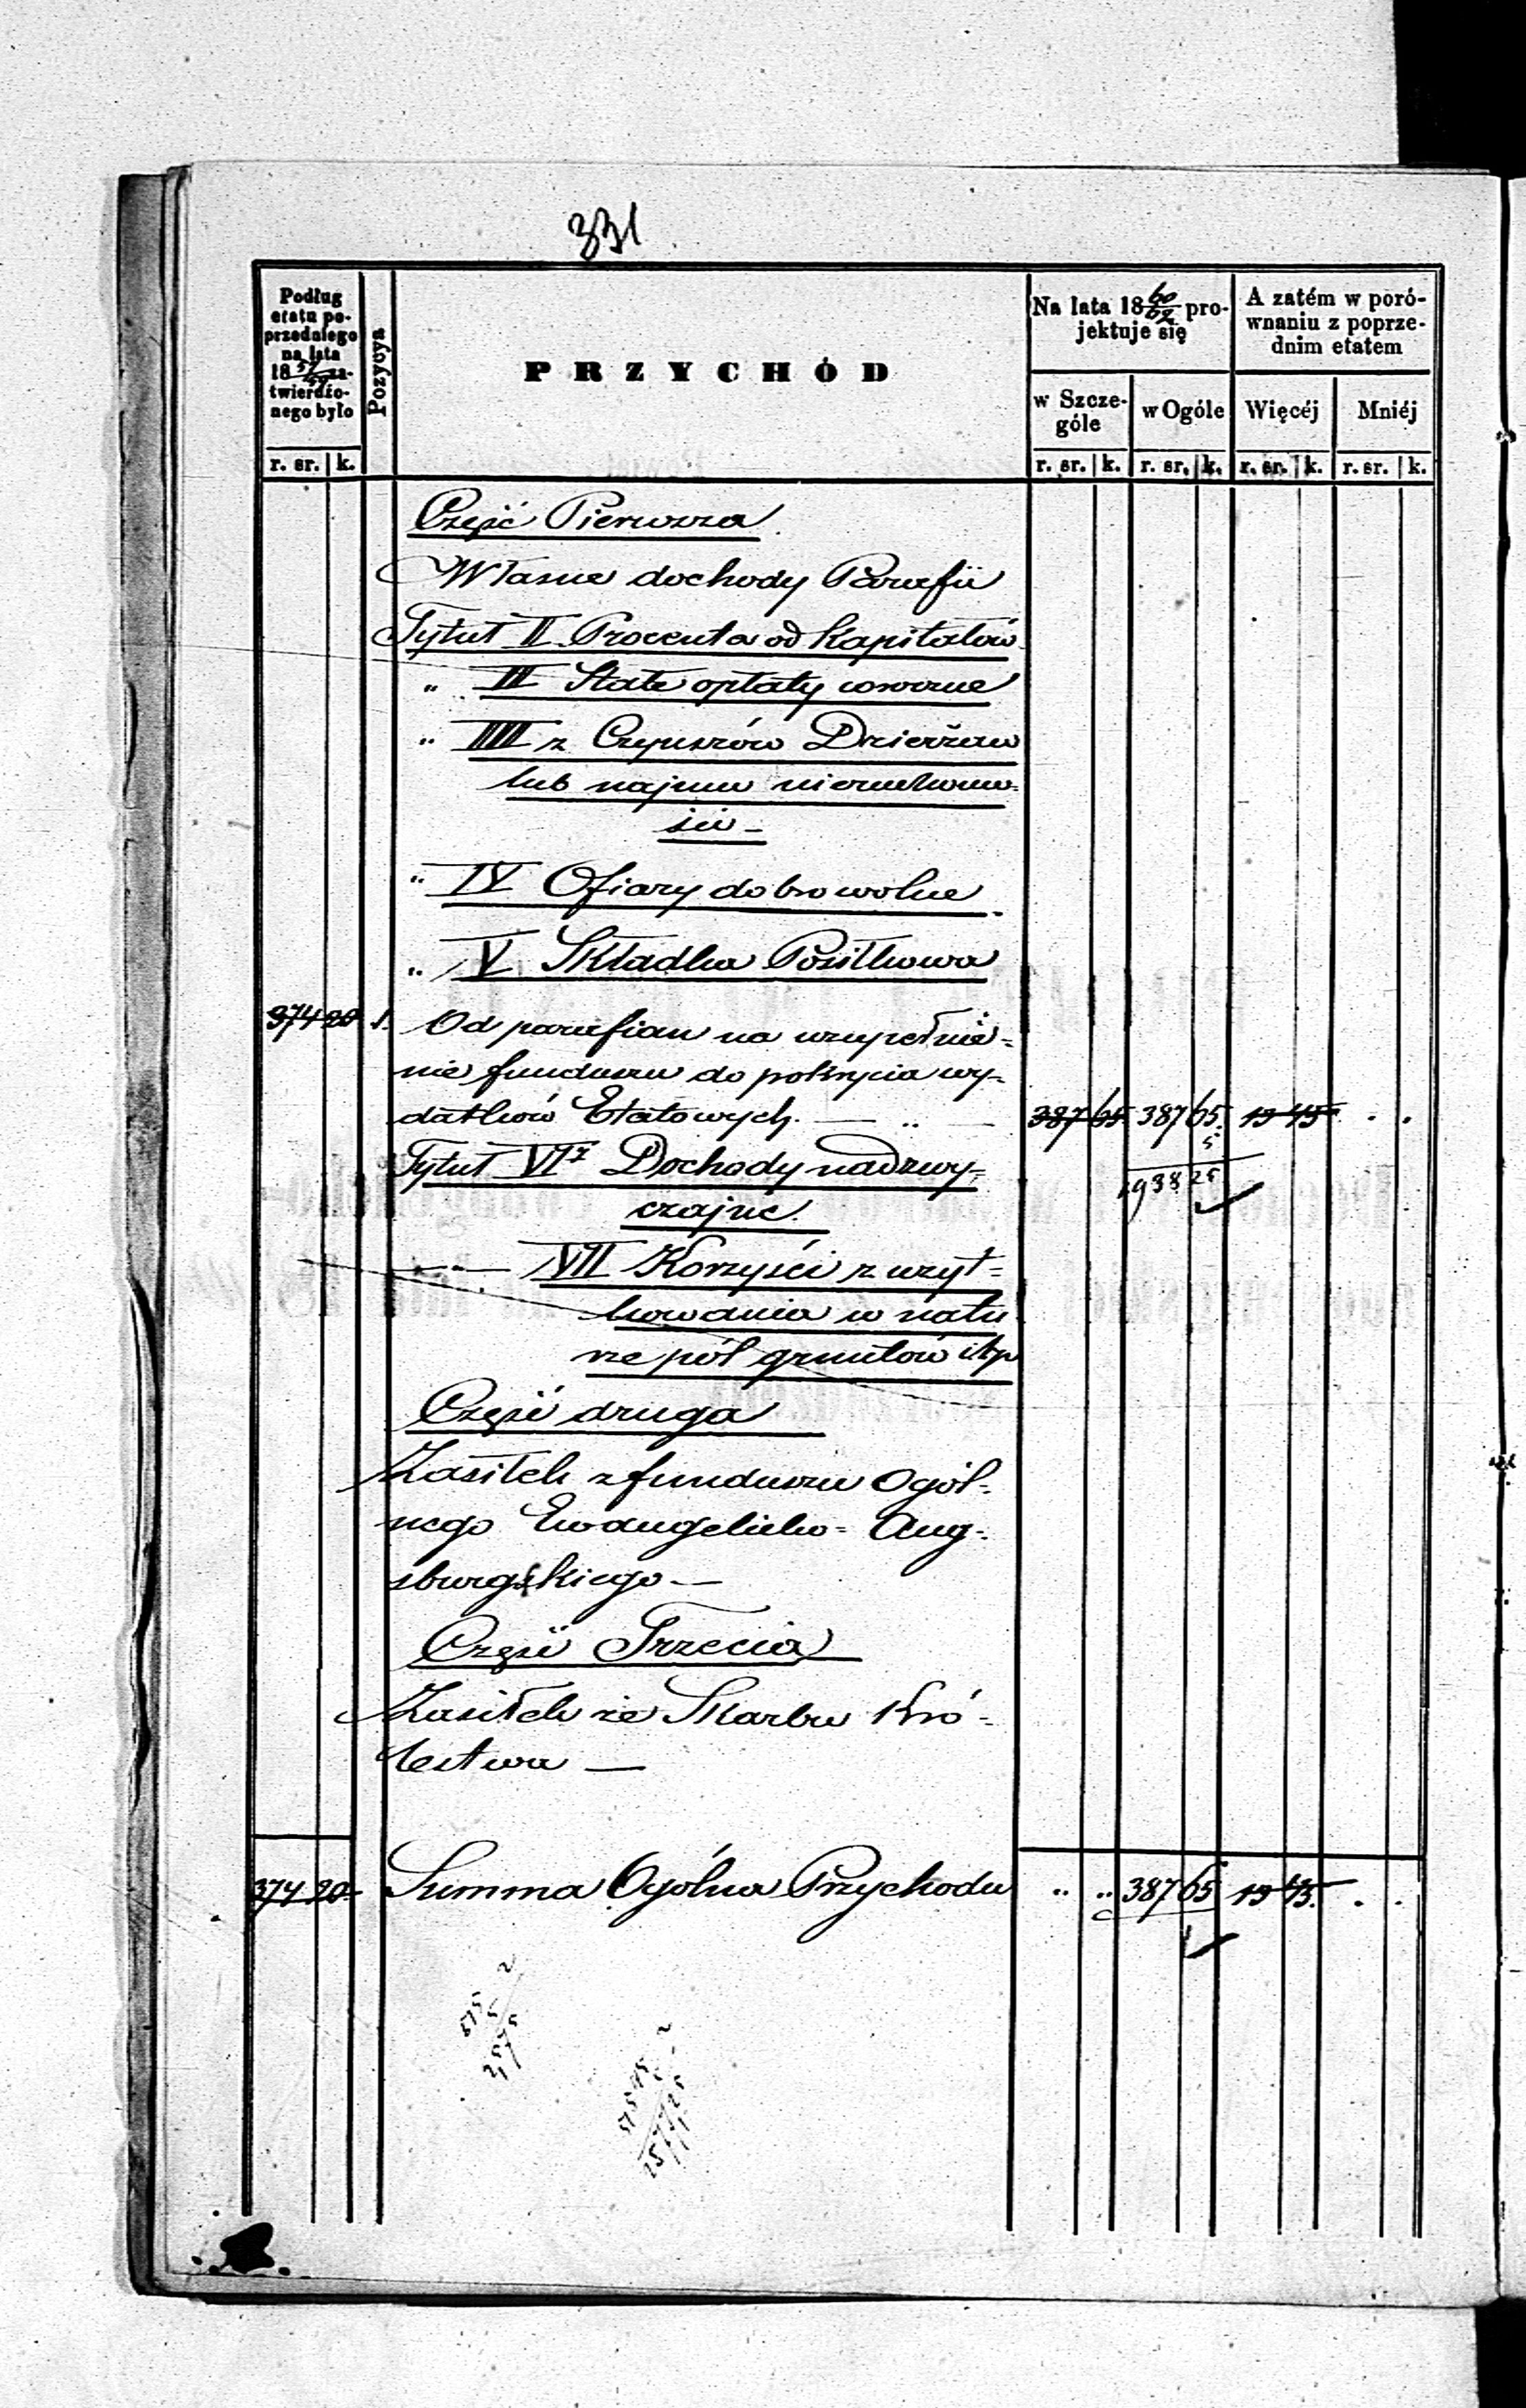 331
Podług
etatu po-
przedniego
na lata
18 57/59 za-
twierdzo-
nego było
Pozycya
PRZYCHÓD
Na lata 18 60/62 pro-
jektuje się
A zatém w poró-
wnaniu z poprze-
dnim etatem
w Szcze-
góle
w Ogóle
Więcéj
Mniéj
r. sr. k. r. sr. k. r. sr. k. r. sr. k. r. sr. k.
Część Pierwsza
Własne dochody Parafii
Tytuł II Procenta od Kapitałów
" III Stałe opłaty
" IIII z Czynszów Dzierżaw
lub najmu nieruchomo-
ści -
" IV Ofiary dobrowolne
" V Składka Posiłkowa
374 20 1. Od parafian na uzupełnie=
nie funduszu do pokrycia wy-
datków Etatowych. — " — 387 65 387 65. 13 45 . .
5
1938 25
Tytuł VI Dochody nadzwy=
czajne.
— " — VII Korzyści z użyt=
kowania w natu
rze pól gruntów itp
Część druga
Zasiłek z funduszu Ogól-
nego Ewangelicko= Aug-
sburgskiego —
Część Trzecia
Zasiłek ze Skarbu Kró-
lestwa —
374 20 Summa Ogólna Przychodu " " 387 65 13 45. . .
515
5
2575
515 45
5
2577 25